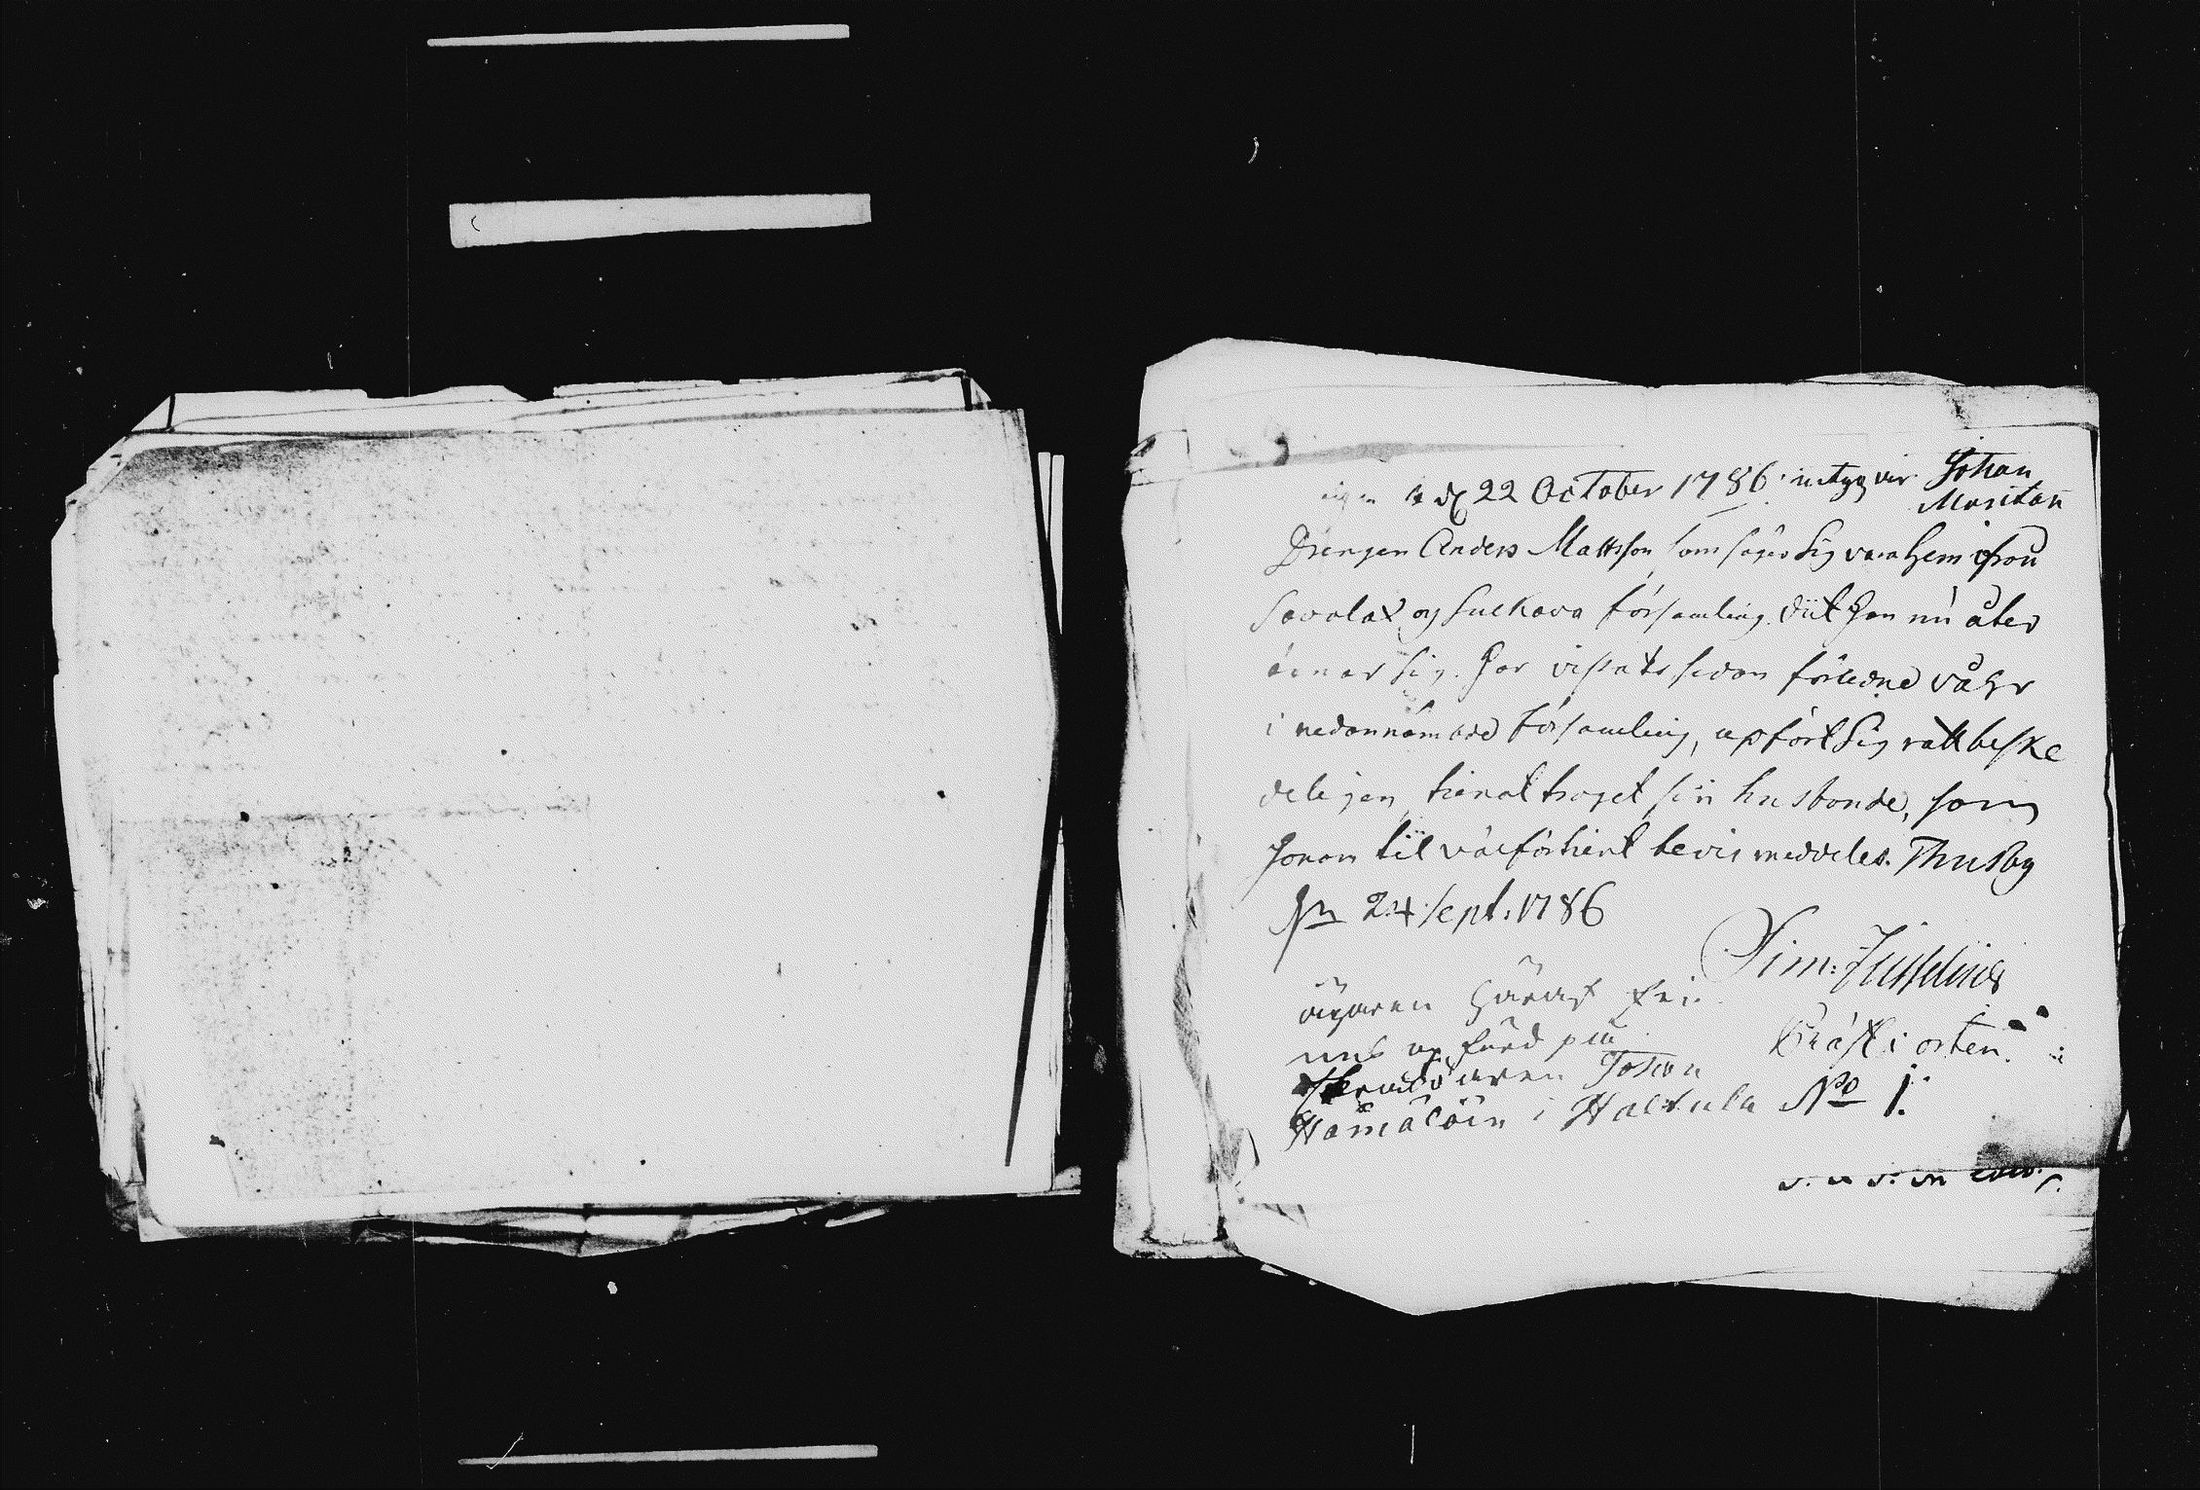 d 22 October 1786 intyg vir Johan
Musitan
Drengen Anders Mattsson som säger sig vara hem ifrån
Savolax og Sulkava församling, dit han nu åter
ärnar sig. har vistats sedan förledne våhr
i nedannämnde församling, upfört sig rätt beske
deligen, tienat troget sin husbonde, som
honom til välförtient bevis meddeles. Thusby
24 Sept: 1786
Sim:
Präst i orten.
ägaren härast
upförd på
Johan
Hämäläin i Haltula No 1.